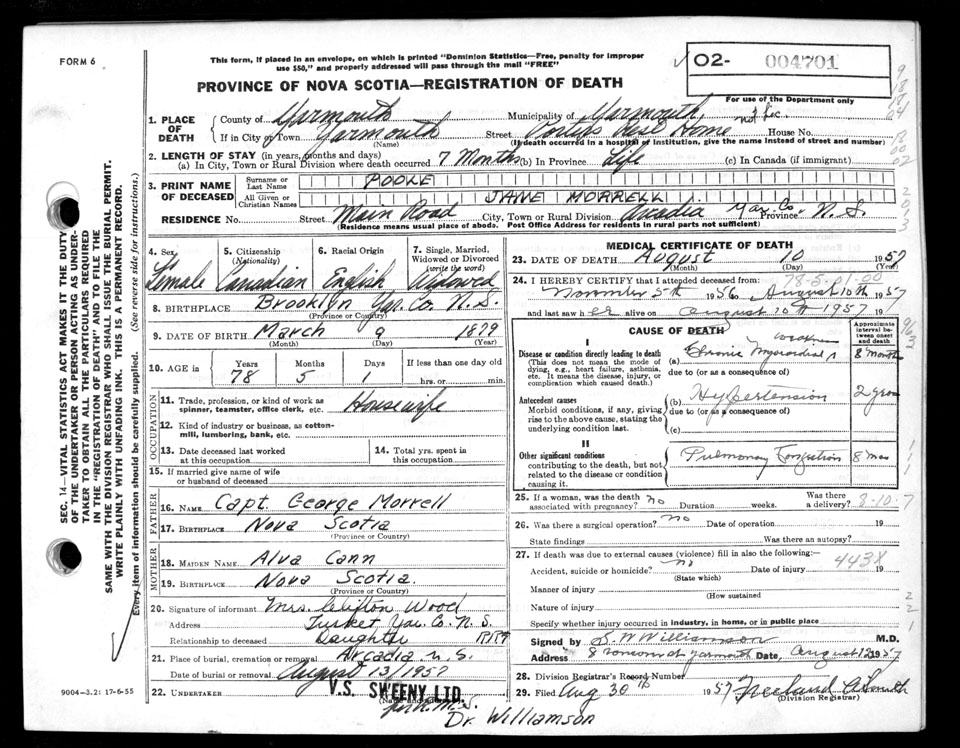 FORM 6
This form, if placed in an envelope, on which is printed "Dominion Statistics—Free, penalty for improper
use $50," and properly addressed will pass through the mail "FREE"
PROVINCE OF NOVA SCOTIA—REGISTRATION OF DEATH
02- 004701
For use of the Department only
1. PLACE OF DEATH
County of Yarmouth Municipality of Yarmouth
If in City or Town Yarmouth Street Rest Home House No.
(Name) (If death occurred in a hospital or institution, give the name instead of street and number)
2. LENGTH OF STAY (in years, months and days)
(a) In City, Town or Rural Division where death occurred 7 Months (b) In Province Life (c) In Canada (if immigrant)
3. PRINT NAME OF DECEASED
Surname or Last Name POOLE
All Given or Christian Names JANE MORRELL
RESIDENCE No. Street Main Road City, Town or Rural Division Arcadia Yar. Co. Province N. S.
(Residence means usual place of abode. Post Office Address for residents in rural parts not sufficient)
4. Sex 5. Citizenship (Nationality) 6. Racial Origin 7. Single, Married, Widowed or Divorced (write the word)
Female Canadian English Widowed
8. BIRTHPLACE Brooklyn Yar. Co. N. S.
(Province or Country)
9. DATE OF BIRTH March 9 1879
(Month) (Day) (Year)
10. AGE in Years Months Days If less than one day old
78 5 1 hrs. or min.
OCCUPATION
11. Trade, profession, or kind of work as spinner, teamster, office clerk, etc. Housewife
12. Kind of industry or business, as cotton-mill, lumbering, bank, etc.
13. Date deceased last worked at this occupation
14. Total yrs. spent in this occupation
15. If married give name of wife or husband of deceased
FATHER
16. NAME Capt. George Morrell
17. BIRTHPLACE Nova Scotia
(Province or Country)
MOTHER
18. MAIDEN NAME Alva Cann
19. BIRTHPLACE Nova Scotia.
(Province or Country)
20. Signature of informant Mrs. Clifton Wood
Address Tusket Yar. Co. N. S.
Relationship to deceased Daughter
21. Place of burial, cremation or removal Arcadia N. S.
Date of burial or removal August 13, 1957
22. UNDERTAKER V.S. SWEENY LTD.
(Name and address)
Dr. Williamson
MEDICAL CERTIFICATE OF DEATH
23. DATE OF DEATH August 10 1957
(Month) (Day) (Year)
24. I HEREBY CERTIFY that I attended deceased from: 78-5-01-00
November 5th 1956 to August 10th 1957
and last saw her alive on August 10th 1957 19
CAUSE OF DEATH
Approximate interval between onset and death
I
Disease or condition directly leading to death
(This does not mean the mode of dying, e.g., heart failure, asthenia, etc. It means the disease, injury, or complication which caused death.)
(a) Chronic Myocardial 8 months
due to (or as a consequence of)
Antecedent causes
Morbid conditions, if any, giving rise to the above cause, stating the underlying condition last.
(b) Hypertension 2 years
due to (or as a consequence of)
(c)
II
Other significant conditions
contributing to the death, but not related to the disease or condition causing it.
Pulmonary Congestion 8 mos
25. If a woman, was the death associated with pregnancy? no Duration weeks. Was there a delivery? 8-10-7
26. Was there a surgical operation? no Date of operation 19
State findings Was there an autopsy?
27. If death was due to external causes (violence) fill in also the following:— 443X
Accident, suicide or homicide? no Date of injury 19
(State which)
Manner of injury
(How sustained)
Nature of injury
Specify whether injury occurred in industry, in home, or in public place
Signed by S. W. Williamson M.D.
Address Yarmouth Date, August 12 1957
28. Division Registrar's Record Number
29. Filed Aug 30th 1957
(Division Registrar)
SEC. 14—VITAL STATISTICS ACT MAKES IT THE DUTY
OF THE UNDERTAKER OR PERSON ACTING AS UNDER-
TAKER TO OBTAIN ALL THE PARTICULARS REQUIRED
IN THE "REGISTRATION OF DEATH" AND TO FILE THE
SAME WITH THE DIVISION REGISTRAR WHO SHALL ISSUE THE BURIAL PERMIT.
WRITE PLAINLY WITH UNFADING INK. THIS IS A PERMANENT RECORD.
Every item of information should be carefully supplied. (See reverse side for instructions.)
9004—3.2: 17-6-55